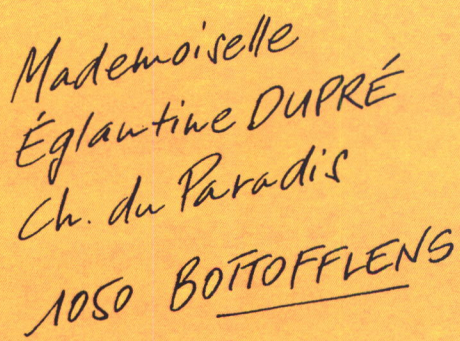 Mademoiselle
Églantine DUPRÉ
Ch. du Paradis
1050 BOTTOFFLENS